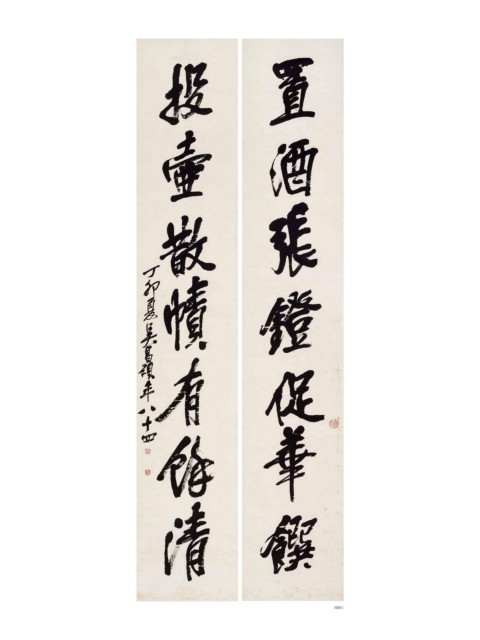 置酒張鐙促華饌
投壺散帙有餘清
丁卯夏吳昌碩年八十四